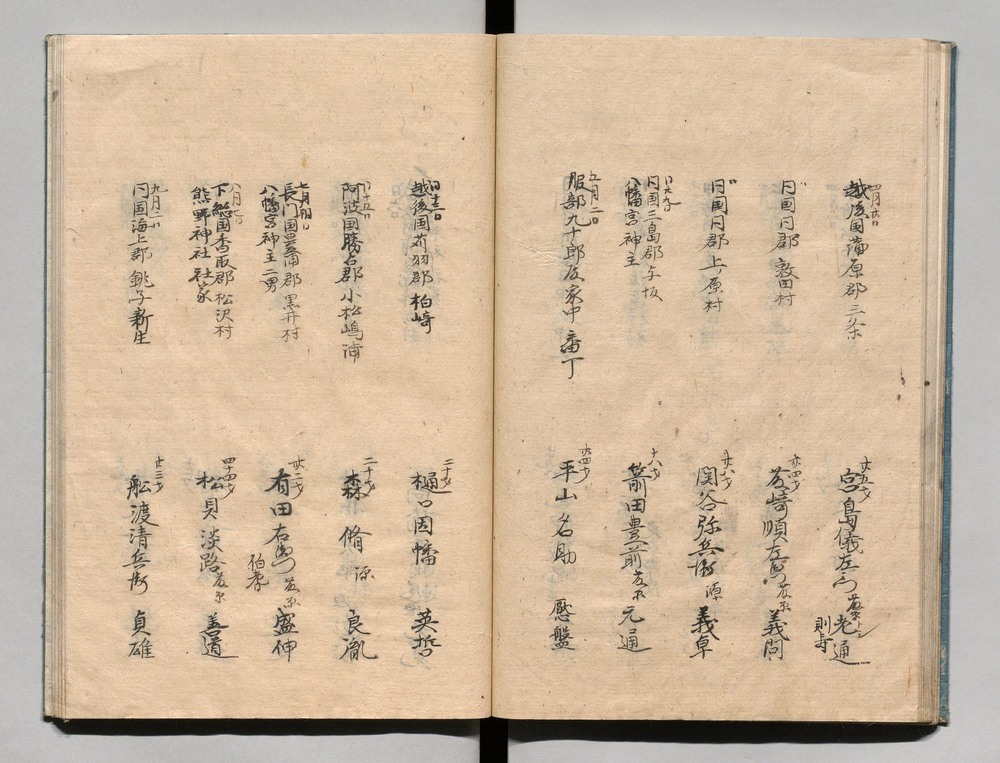 四月六日
越後国蒲原郡三条
廿五才
宮島儀左衛門 藤原 老通
則寿
〃
同国同郡 敦田村
廿四才
藤崎順左衛門 藤原 義問
〃
同国同郡上ノ原村
廿八才
関谷弥兵衛 源 義卓
同国三島郡与板
八幡宮神主
十八才
箭田豊前 藤原 元通
五月二日
服部九十郎殿家中 番丁
廿四才
平山名助 愿盤
越後国苅羽郡 柏崎
二十才
樋口因幡 英哲
同十五日
阿波国勝占郡 小松嶋浦
二十才
森 脩 源 良胤
七月朔日
長門国豊浦郡 黒井村
八幡宮神主二男
廿二才
有田右衛門 藤原 盛伸
伯孝
八月七日
下総国香取郡 松沢村
熊野神社 社家
四十四才
松貝淡路 藤原 善道
九月二日
同国海上郡 銚子新生
廿三才
舩渡清兵衛 貞雄